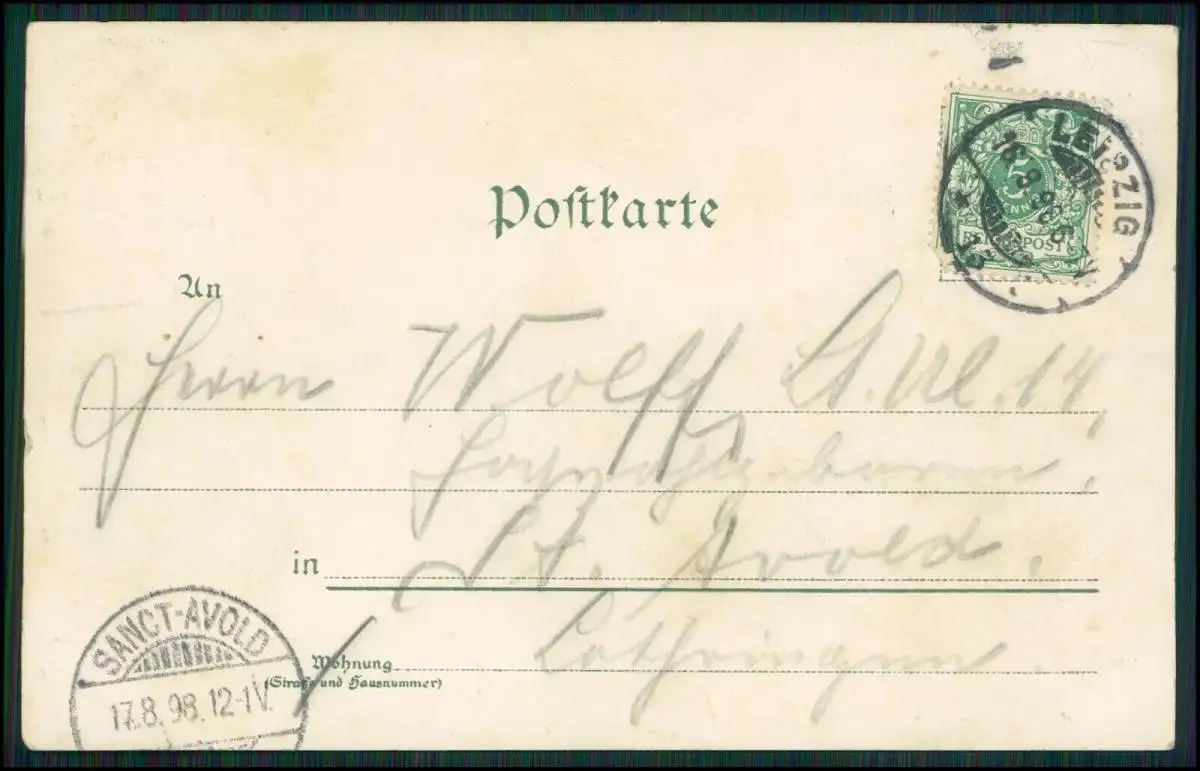 Postkarte
LEIPZIG
16.8.98.
13
5
PFENNIG
REICHSPOST
An
Herrn Wolff Lt. Ul. 14,
Hochwohlgeboren,
in St. Avold.
Wohnung
(Straße und Hausnummer)
Lothringen.
SANCT-AVOLD
17.8.98.12-1V.